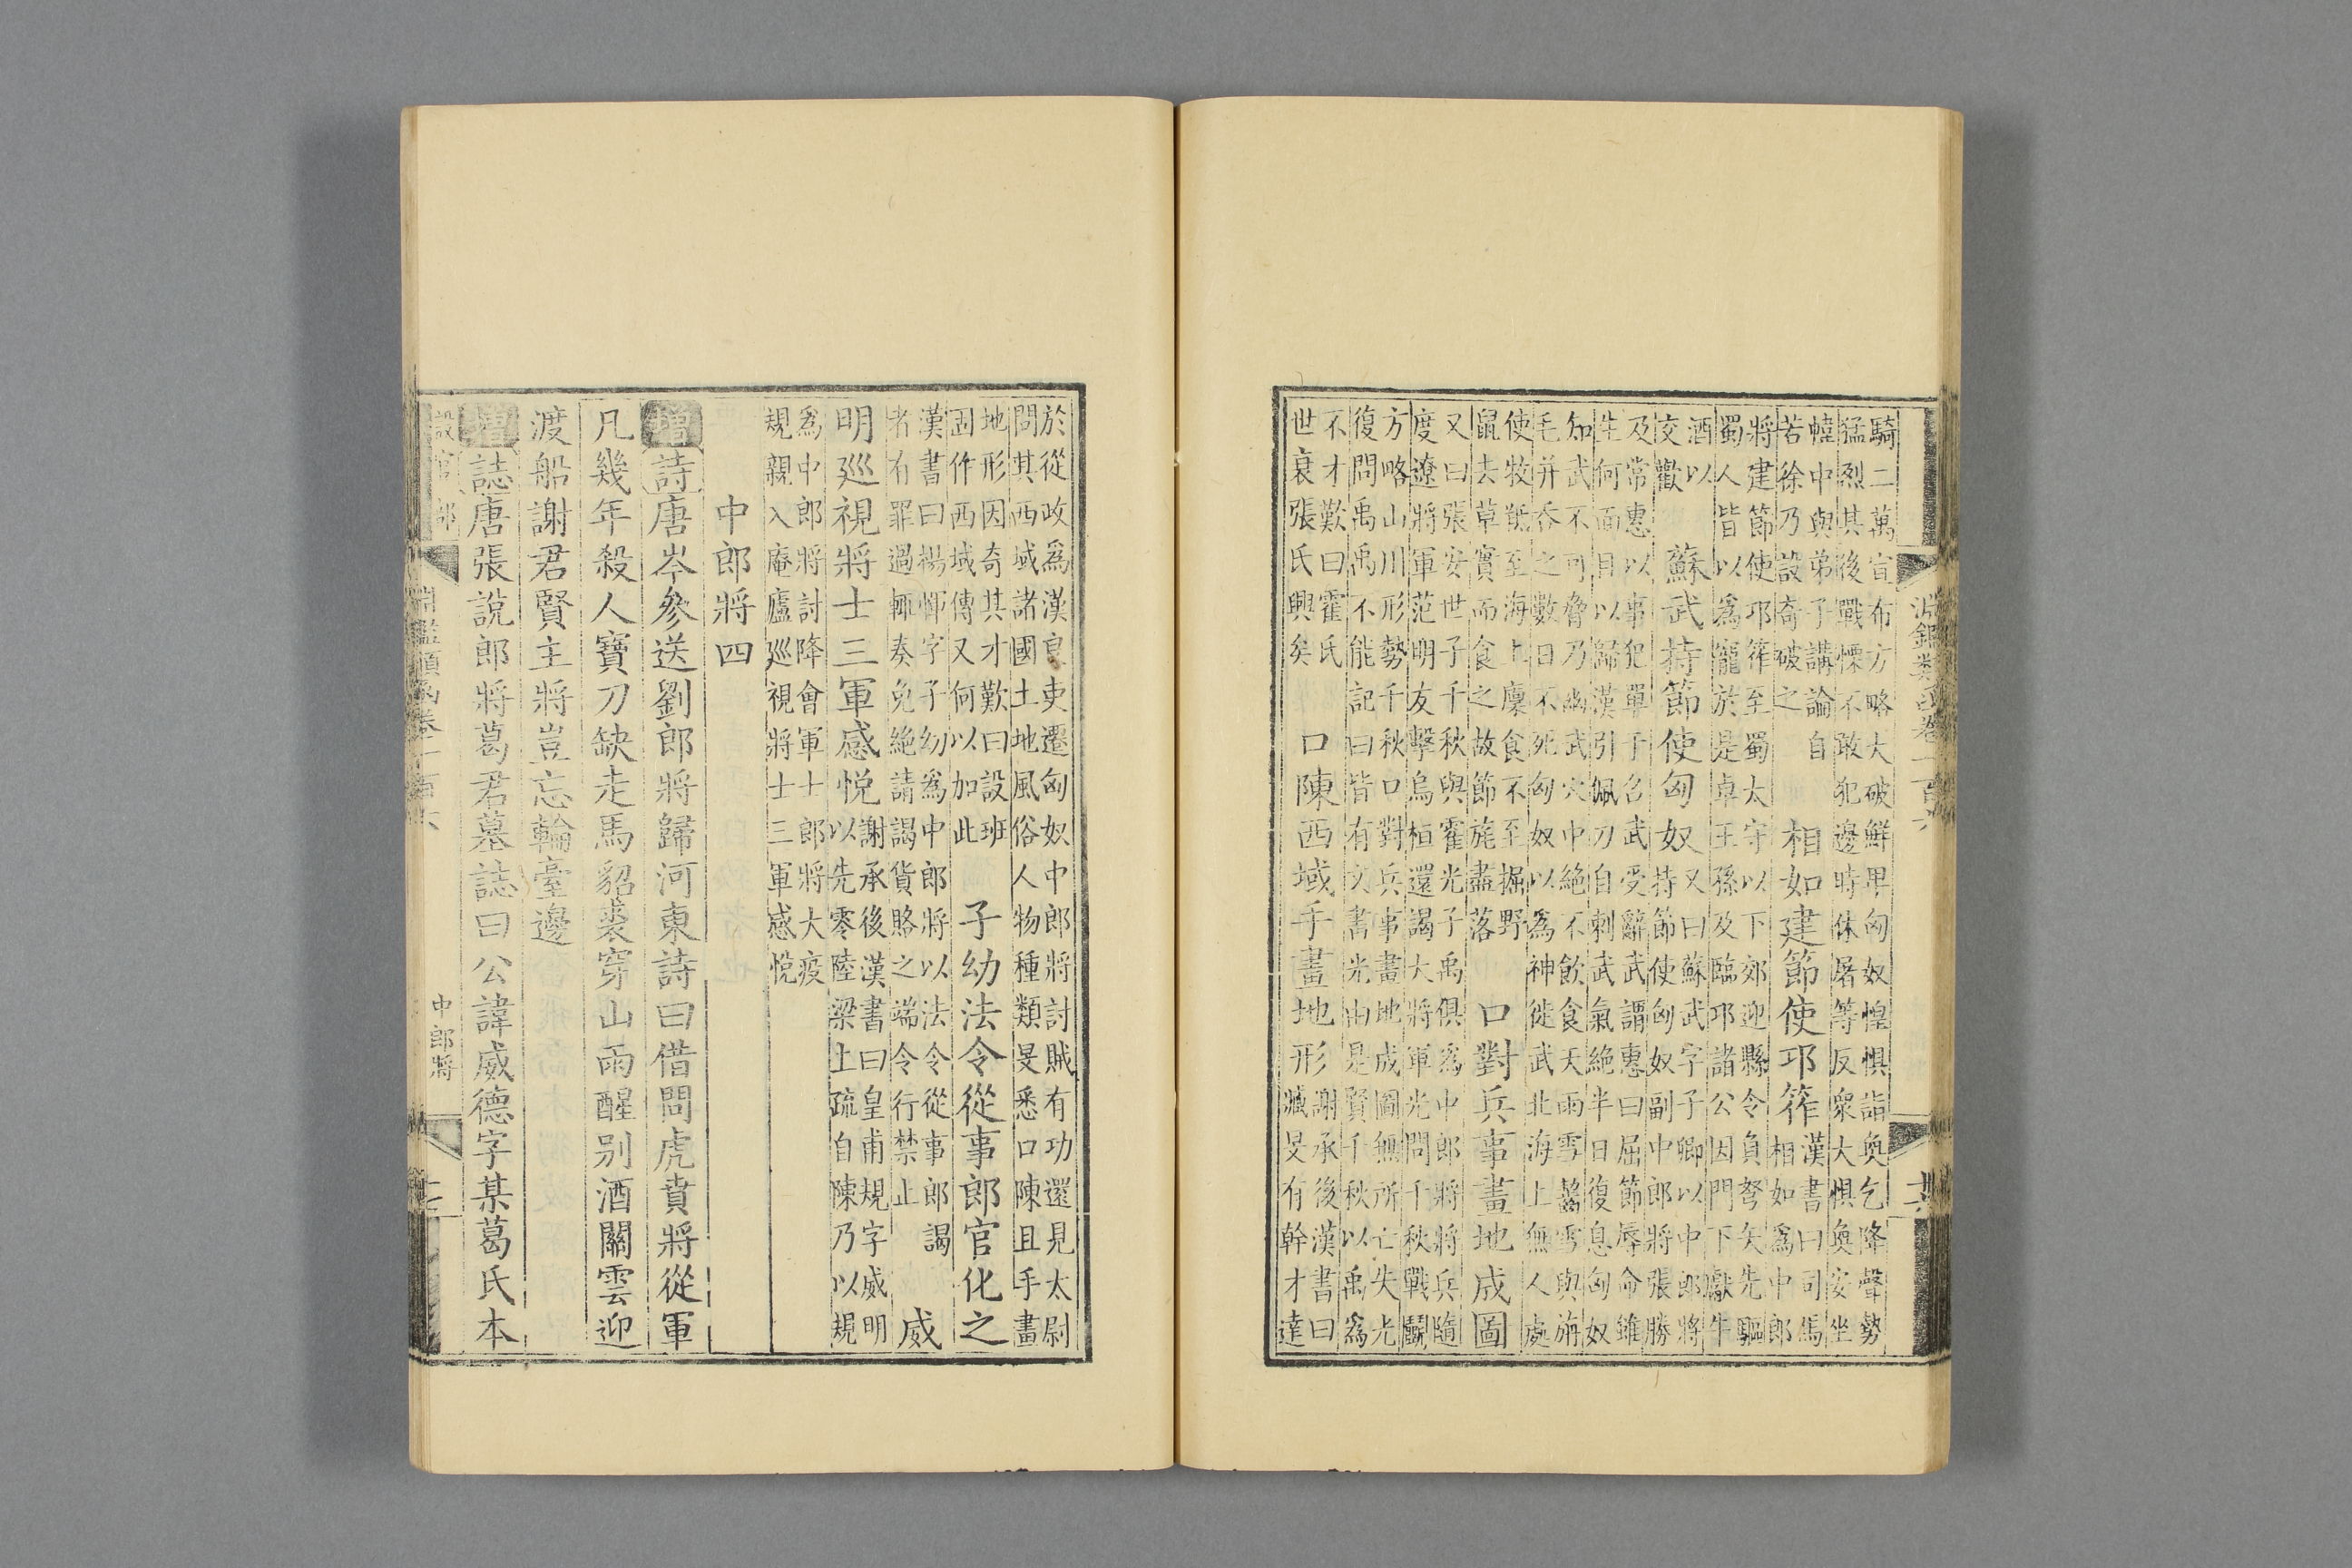 淵鑑類函卷一百六
騎二萬宣布方略大破鮮卑匈奴惶懼詣奐乞降聲勢
猛烈其後戰慄不敢犯邊時休屠等反衆大懼奐安坐
幃中與弟子講論自
若徐乃設奇破之
相如建節使邛筰
漢書曰司馬
相如爲中郎
將建節使邛筰至蜀太守以下郊迎縣令負弩矢先驅
蜀人皆以爲寵於是卓王孫及臨邛諸公因門下獻牛
酒以
交歡
蘇武持節使匈奴
又曰蘇武字子卿以中郎將
持節使匈奴副中郎將張勝
及常惠以事犯單于召武受辭武謂惠曰屈節辱命雖
生何面目以歸漢引佩刀自刺武氣絶半日復息匈奴
知武不可脅乃幽武穴中絶不飲食天雨雪齧雪與旃
毛并吞之數日不死匈奴以爲神徙武北海上無人處
使牧羝至海上廩食不至掘野
鼠去草實而食之故節旄盡落
口對兵事畫地成圖
又曰張安世子千秋與霍光子禹俱爲中郎將將兵隨
度遼將軍范明友擊烏桓還謁大將軍光問千秋戰鬬
方略山川形勢千秋口對兵事畫地成圖無所亡失光
復問禹禹不能記曰皆有文書光由是賢千秋以禹爲
不才歎曰霍氏
世衰張氏興矣
口陳西域手畫地形
謝承後漢書曰
臧旻有幹才達
於從政爲漢良吏遷匈奴中郎將討賊有功還見太尉
問其西域諸國土地風俗人物種類旻悉口陳且手畫
地形因奇其才歎曰設班
固作西域傳又何以加此
子幼法令從事郎官化之
漢書曰楊惲字子幼爲中郎將以法令從事郎謁
者有罪過輒奏免絶請謁貨賂之端令行禁止
威
明巡視將士三軍感悅
謝承後漢書曰皇甫規字威明
以先零陸梁上疏自陳乃以規
爲中郎將討降會軍士郎將大疫
規親入庵廬巡視將士三軍感悅
中郎將四
增詩唐岑參送劉郎將歸河東詩曰借問虎賁將從軍
凡幾年殺人寶刀缺走馬貂裘穿山雨醒别酒關雲迎
渡船謝君賢主將豈忘輪臺邊
增誌唐張說郎將葛君墓誌曰公諱威德字某葛氏本
設官部
淵鑑類函卷一百六
中郎將